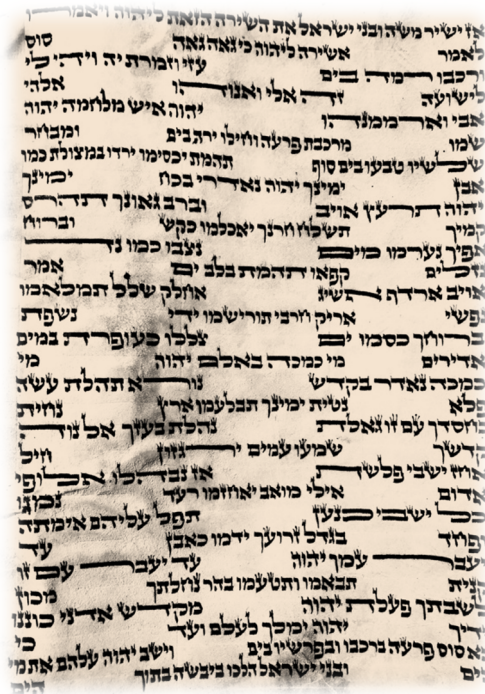 אז ישיר משה ובני ישראל את השירה הזאת ליהוה ויאמרו
לאמר אשירה ליהוה כי גאה גאה סוס
ורכבו רמה בים עזי וזמרת יה ויהי לי
לישועה זה אלי ואנוהו אלהי
אבי וארממנהו יהוה איש מלחמה יהוה
שמו מרכבת פרעה וחילו ירה בים ומבחר
שלשיו טבעו בים סוף תהמת יכסימו ירדו במצולת כמו
אבן ימינך יהוה נאדרי בכח ימינך
יהוה תרעץ אויב וברב גאונך תהרס
קמיך תשלח חרנך יאכלמו כקש וברוח
אפיך נערמו מים נצבו כמו נד
נזלים קפאו תהמת בלב ים אמר
אויב ארדף אשיג אחלק שלל תמלאמו
נפשי אריק חרבי תורישמו ידי נשפת
ברוחך כסמו ים צללו כעופרת במים
אדירים מי כמכה באלם יהוה מי
כמכה נאדר בקדש נורא תהלת עשה
פלא נטית ימינך תבלעמו ארץ נחית
בחסדך עם זו גאלת נהלת בעזך אל נוה
קדשך שמעו עמים ירגזון חיל
אחז ישבי פלשת אז נבהלו אלופי
אדום אילי מואב יאחזמו רעד נמגו
כל ישבי כנען תפל עליהם אימתה
ופחד בגדל זרועך ידמו כאבן עד
יעבר עמך יהוה עד יעבר עם זו
קנית תבאמו ותטעמו בהר נחלתך מכון
לשבתך פעלת יהוה מקדש אדני כוננו
ידיך יהוה ימלך לעלם ועד כי
בא סוס פרעה ברכבו ובפרשיו בים וישב יהוה עלהם את מי
הים ובני ישראל הלכו ביבשה בתוך הים